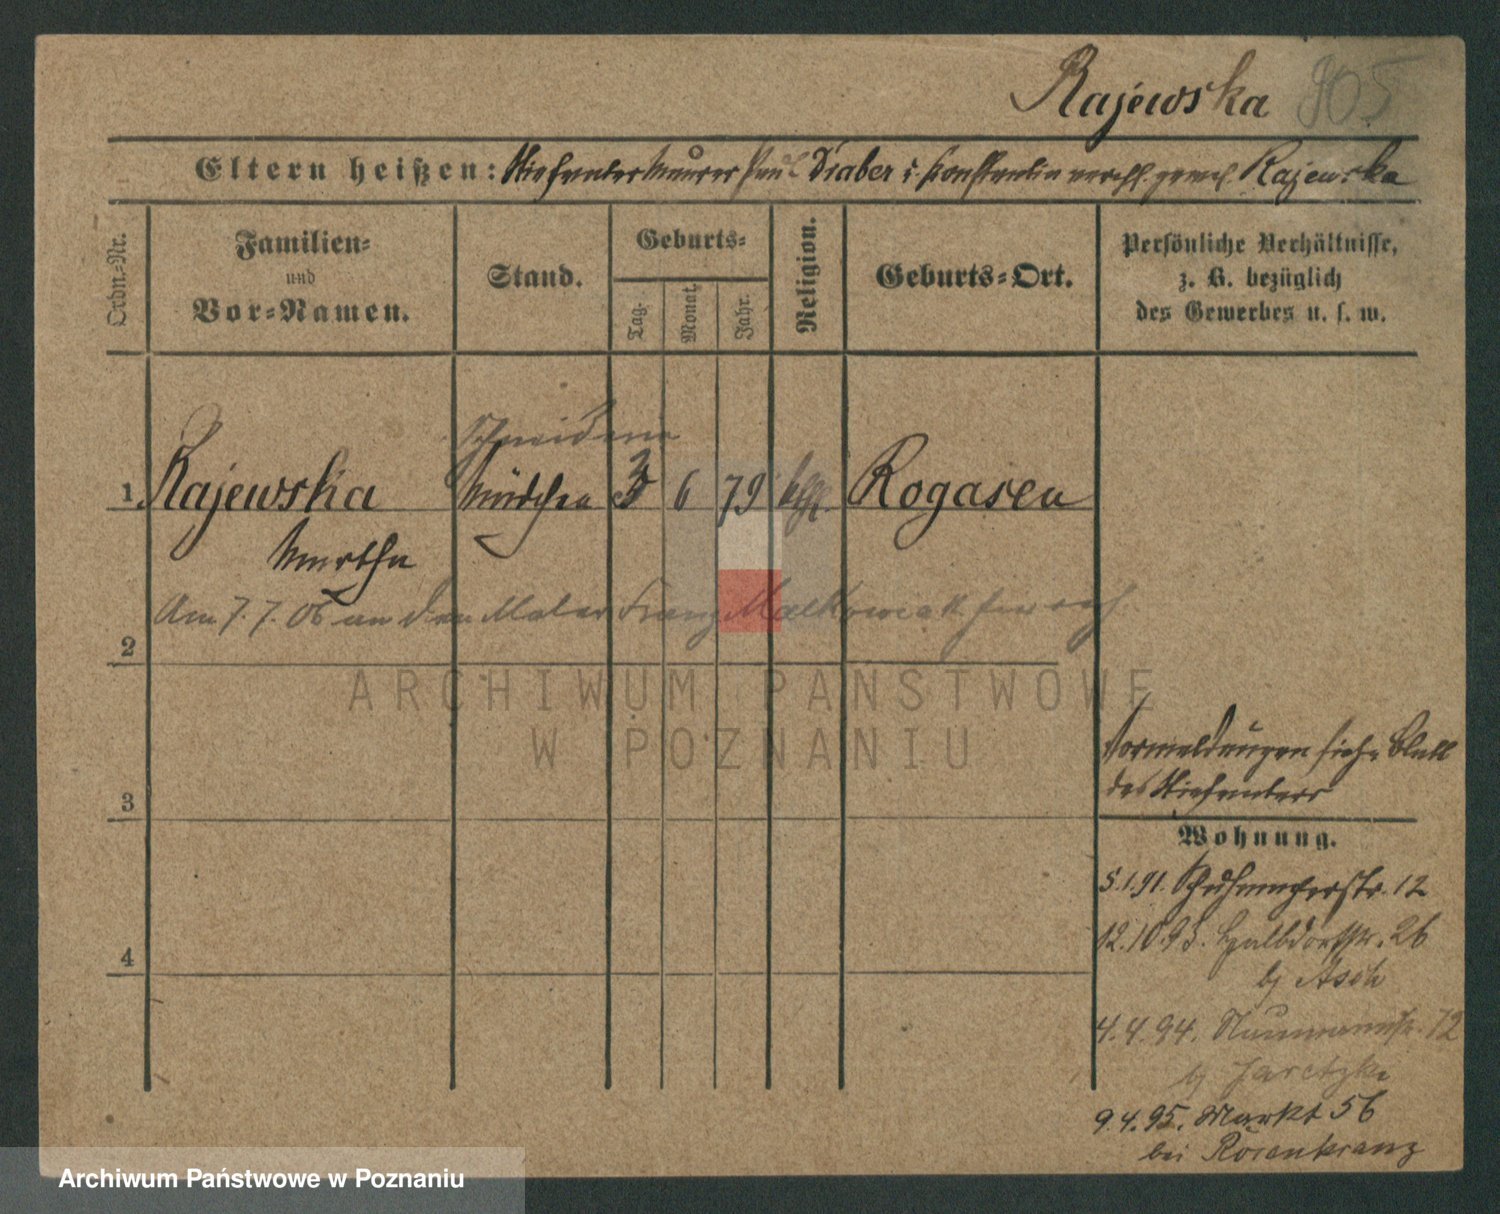 Rajewska 905
Eltern heißen: Stiefvater Maurer Paul Draber u. Konstantin verehl. gewes. Rajewska
Ordn.-Nr.
Familien-
und
Vor-Namen.
Stand.
Geburts-
Tag.
Monat.
Jahr.
Religion.
Geburts-Ort.
Persönliche Verhältnisse,
z. B. bezüglich
des Gewerbes u. s. w.
Schneiderin
1 Rajewska Mädchen 3 6 79 kath. Rogasen
Martha
Am 7.7.06 an den Maler Franz Malkowiak
2
ARCHIWUM PAŃSTWOWE
W POZNANIU
Vormeldungen siehe Blatt
des Stiefvaters
3
Wohnung.
5.1.91. Schuhmacherstr. 12
12.10.93. Halbdorfstr. 26
bj Asch
4
4.4.94. Naumannstr. 12
bj Jaretzke
9.4.95. Markt 56
bei Rosenkranz
Archiwum Państwowe w Poznaniu